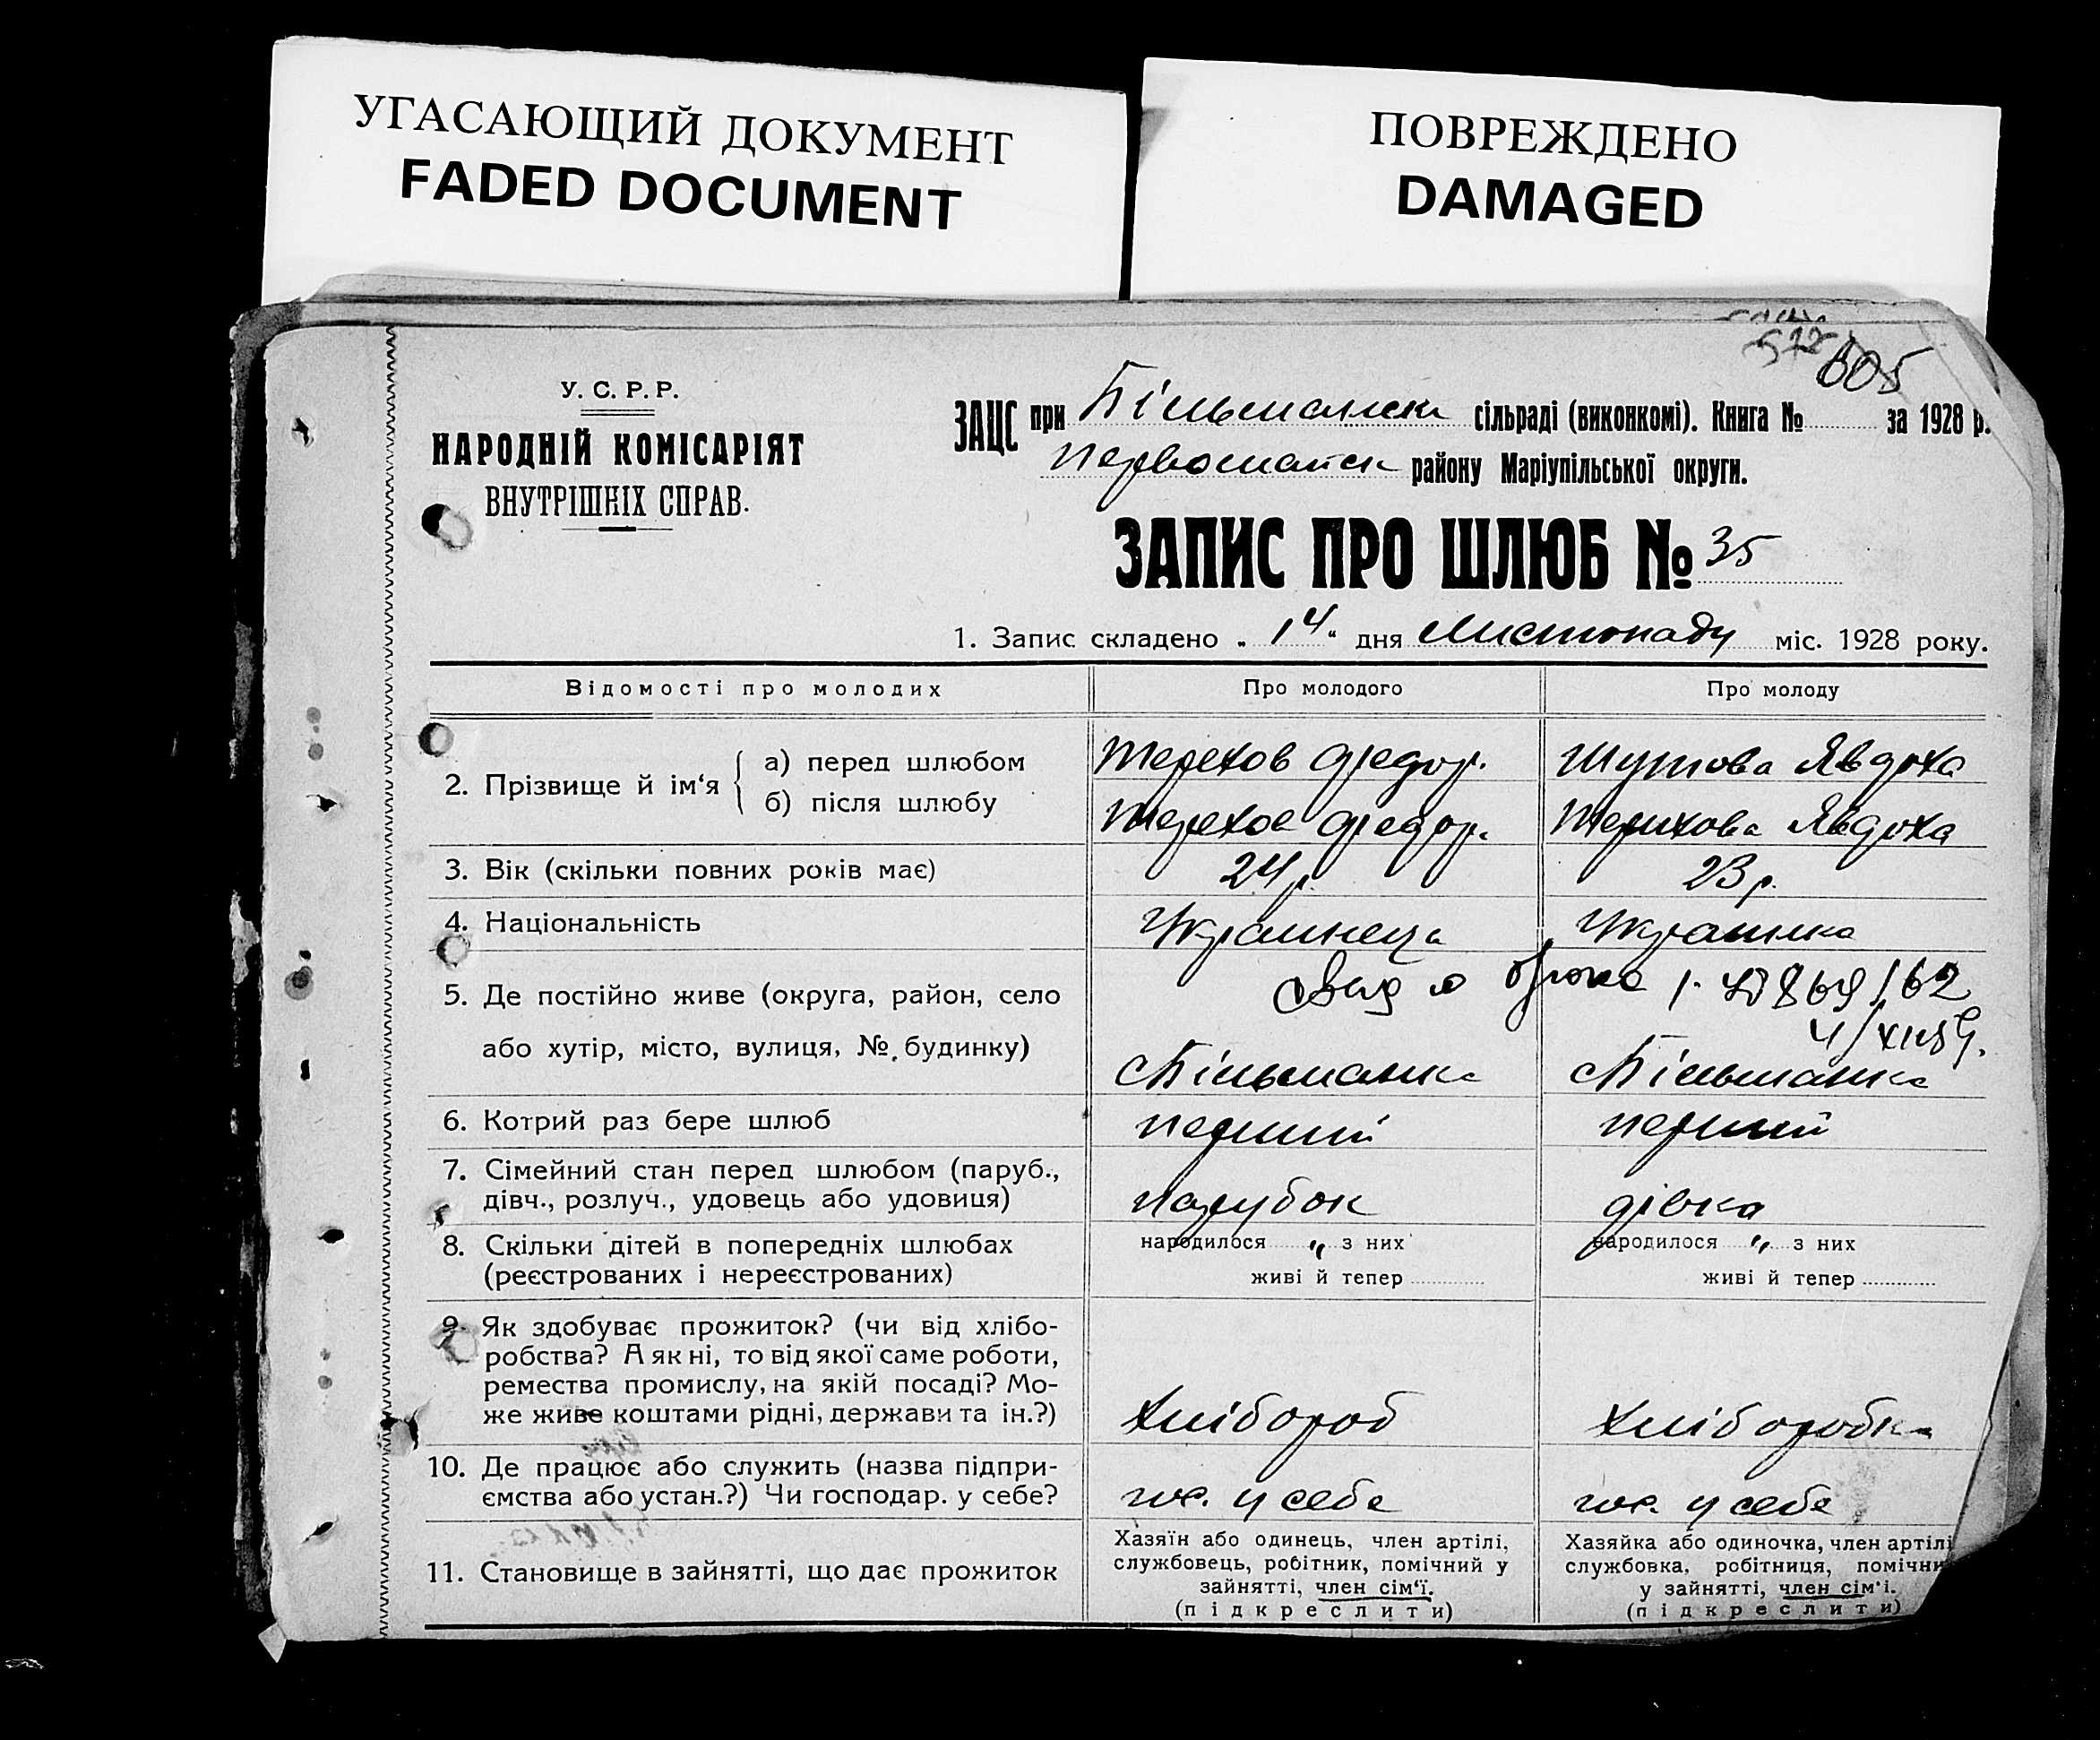 УГАСАЮЩИЙ ДОКУМЕНТ
FADED DOCUMENT
ПОВРЕЖДЕНО
DAMAGED
605
У. С. Р. Р.
НАРОДНІЙ КОМІСАРІЯТ
ВНУТРІШНІХ СПРАВ.
ЗАЦС при Більманск сільраді (виконкомі). Книга № за 1928 р.
Первомайск району Маріупільської округи.
ЗАПИС ПРО ШЛЮБ № 35
1. Запис складено „ 14 “ дня Листопаду міс. 1928 року.
Відомості про молодих Про молодого Про молоду
2. Прізвище й ім‘я
а) перед шлюбом Терехов Федор. Шутова Явдоха
б) після шлюбу Терехов Федор. Терихова Явдоха
3. Вік (скільки повних років має) 24 р. 23 р.
4. Національність Украинец Украинка
5. Де постійно живе (округа, район, село
або хутір, місто, вулиця, № будинку)
с Більманка с Більманка
6. Котрий раз бере шлюб перший перший
7. Сімейний стан перед шлюбом (паруб.,
дівч., розлуч., удовець або удовиця) парубок дівка
8. Скільки дітей в попередніх шлюбах народилося „ з них народилося „ з них
(реєстрованих і нереєстрованих) живі й тепер живі й тепер
9. Як здобуває прожиток? (чи від хлібо-
робства? А як ні, то від якої саме роботи,
ремества промислу, на якій посаді? Мо-
же живе коштами рідні, держави та ін.?) Хлібороб Хліборобка
10. Де працює або служить (назва підпри-
ємства або устан.?) Чи господар. у себе? гос. у себе гос. у себе
11. Становище в зайнятті, що дає прожиток
Хазяїн або одинець, член артілі,
службовець, робітник, помічний у
зайнятті, член сім‘ї.
(підкреслити)
Хазяйка або одиночка, член артілі
службовка, робітниця, помічни
у зайнятті, член сім‘і.
(підкреслити)